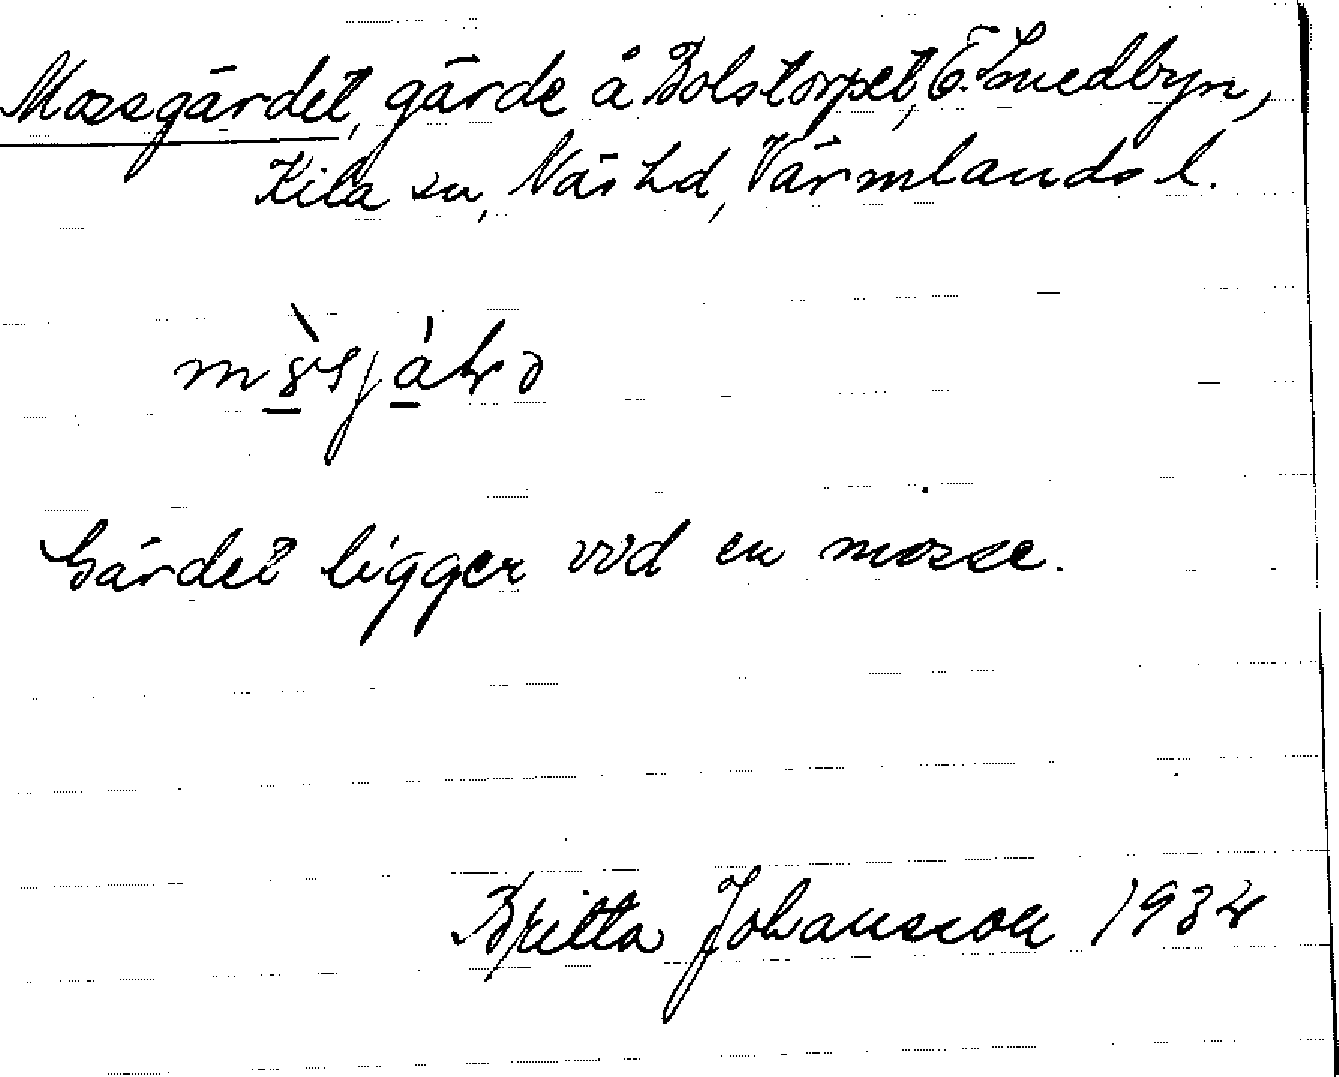 Mossgärdet, gärde å Bolstorpet, Ö. Smedbyn,
Kila sn, Näs hd, Värmlands l.
Gärdet ligger vid en mosse.
Britta Johansson 1934